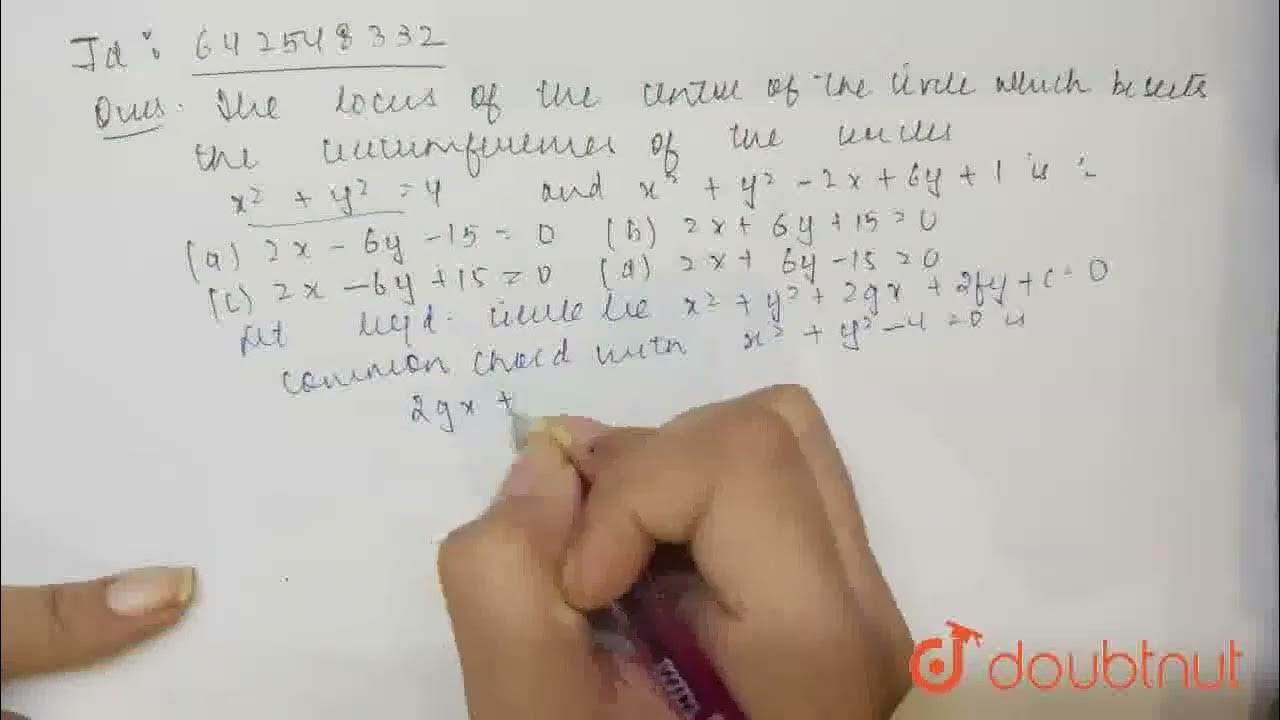 Id : 642548332
Ques. The locus of the centre of the circle which bisects
the circumferences of the circles
x² + y² = 4 and x² + y² - 2x + 6y + 1 is :-
(a) 2x - 6y - 15 = 0 (b) 2x + 6y + 15 = 0
(c) 2x - 6y + 15 = 0 (d) 2x + 6y - 15 = 0
Let reqd. circle be x² + y² + 2gx + 2fy + c = 0
common chord with x² + y² - 4 = 0 is
2gx +
doubtnut